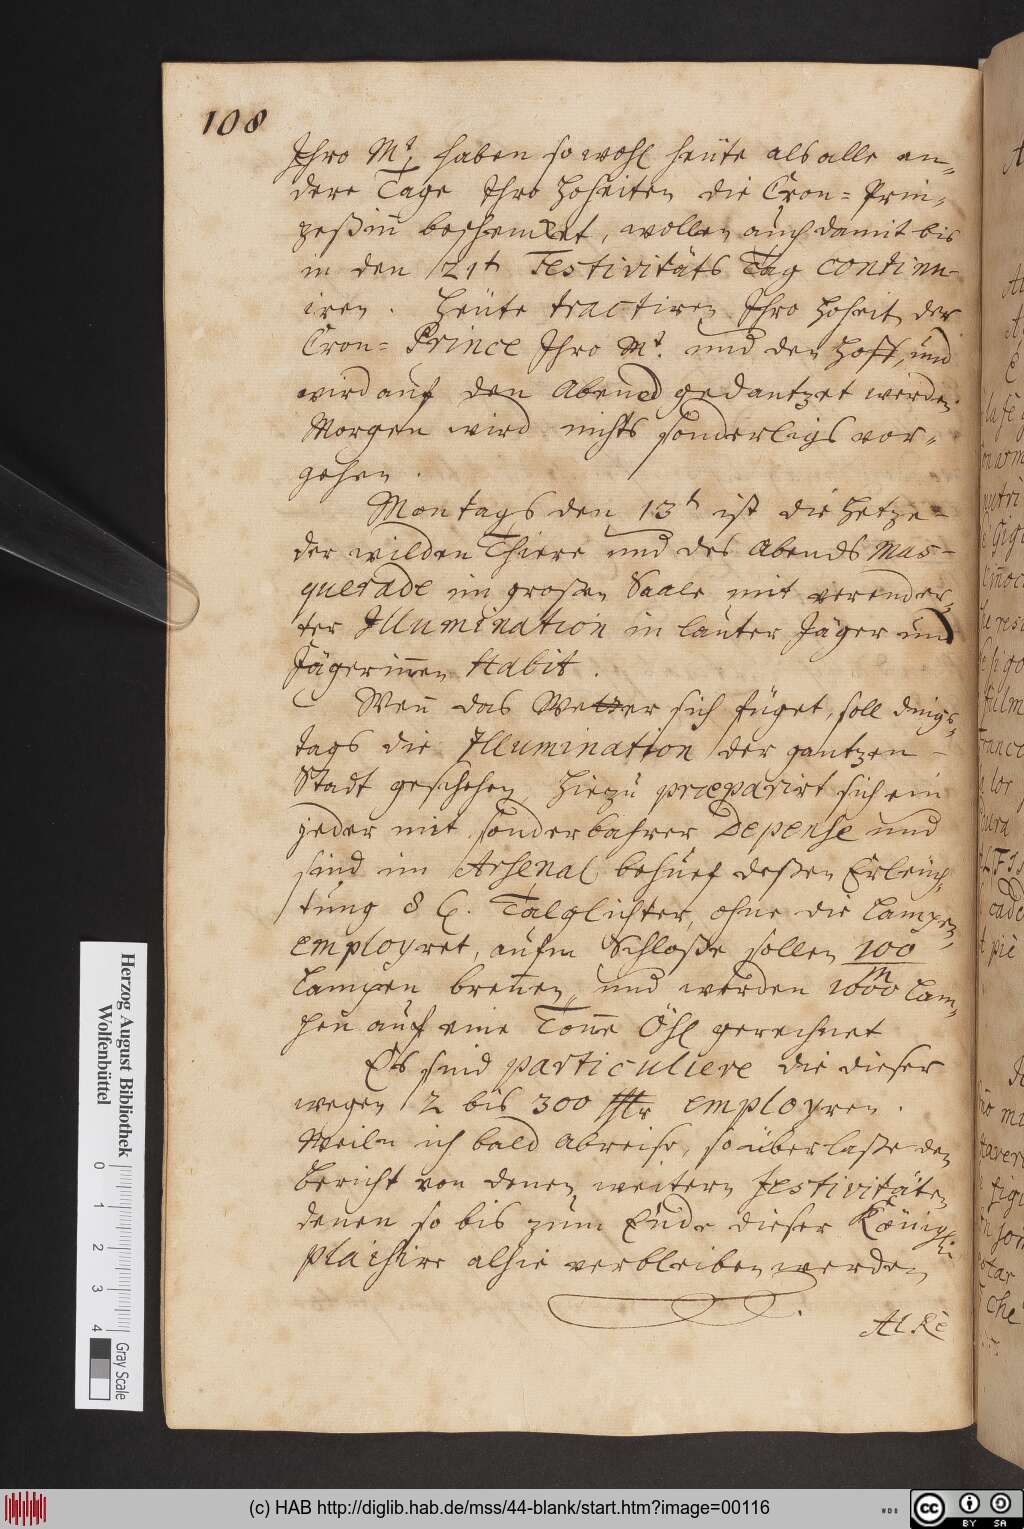 108
Ihro Mt. haben so wohl heüte als alle an-
dere Tage Ihro Hoheiten die Cron-Prin-
zeßin beschencket, wollen auch damit bis
in den 21t Festivitäts Tag contin-
iren. Heüte tractiren Ihro Hoheit der
Cron-Prince Ihro Mt. und den Hoff, und
wird auf den Abend gedantzet werden.
Morgen wird nichts sonderligs vor-
gehen.
Montags den 13t ist die Hetze-
der wilden Thiere und des Abends Mas-
querade im großen Saale mit verender-
ter Illumination in lauter Jäger und
Jägerinnen Habit.
Wen das Wetter sich füget, soll dings-
tags die Illumination der gantzen
Stadt geschehen, hiezu præparirt sich ein
jeder mit sonderbahrer Depense und
sind im Arsenal behuef deßen Erleuch-
tung 8 C. Talglichter, ohne die Lampen,
employret, aufm Schloße sollen 100/m
Lampen brenen, und werden 1000 Lam-
pen auf eine Tonne Öhl gerechnet
Es sind particuliere die dieser
wegen 2 bis 300 employren.
Weiln ich bald abreise, so überlaße den
Bericht von denen weitern Festivitäten
denen so bis zum Ende dieser Königl.
plaisire alhie verbleiben werden.
Herzog August Bibliothek
Wolfenbüttel
0 1 2 3 4
Gray Scale
(c) HAB http://diglib.hab.de/mss/44-blank/start.htm?image=00116
WDB
cc BY SA